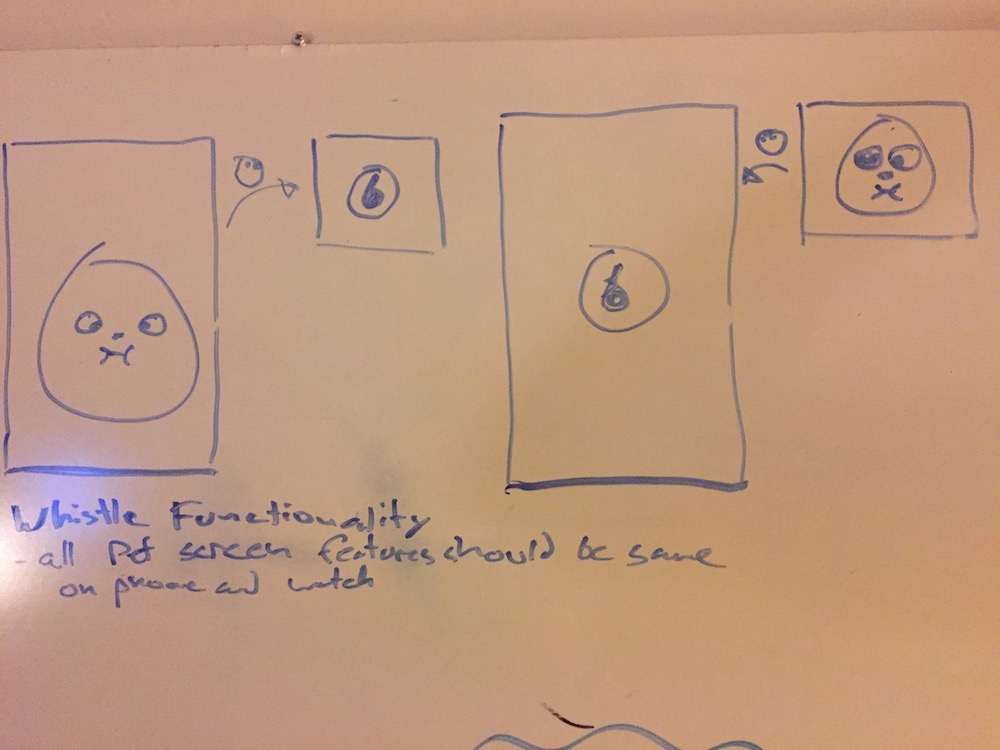 Whistle Functionality
- all Pet screen features should be same
on phone and watch